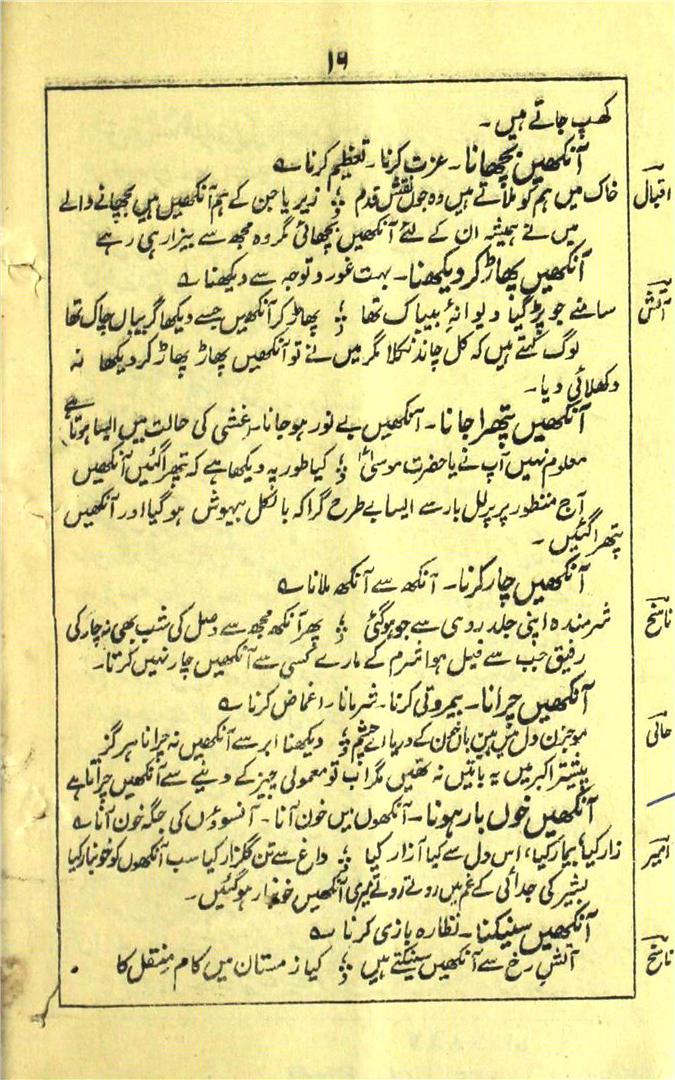 ۱۶
کھپ جاتے ہیں۔
آنکھیں بچھانا۔ عزت کرنا۔ تعظیم کرنا ے
اقبال خاک میں ہم کو ملاتے ہیں وہ جوں نقش قدم ؛ زیر پا جن کے ہم آنکھیں ہیں بچھانے والے
میں نے ہمیشہ ان کے لئے آنکھیں بچھائی مگر وہ مجھ سے بیزار ہی رہے
آنکھیں پھاڑ کر دیکھنا۔ بہت غور و توجہ سے دیکھنا ے
آتش سامنے جو پڑ گیا دیوانۂ بیباک تھا ؛ پھاڑ کر آنکھیں جسے دیکھا گریباں چاک تھا
لوگ کہتے ہیں کہ کل چاند نکلا مگر میں نے تو آنکھیں پھاڑ پھاڑ کر دیکھا نہ
دکھلائی دیا۔
آنکھیں پتھرا جانا۔ آنکھیں بے نور ہو جانا۔ غشی کی حالت میں ایسا ہوتا ہے
معلوم نہیں آپ نے یا حضرت موسیٰؑ ؛ کیا طور پہ دیکھا ہے کہ پتھرا گئیں آنکھیں
آج منظور پریر لل بار سے ایسا بے طرح گرا کہ بالکل بیہوش ہو گیا اور آنکھیں
پتھرا گئیں۔
آنکھیں چار کرنا۔ آنکھ سے آنکھ ملانا ے
ناسخ شرمندہ اپنی جلد روی سے جو ہو گئی ؛ پھر آنکھ مجھ سے وصل کی شب بھی نہ چار کی
رفیق جب سے فیل ہوا شرم کے مارے کسی سے آنکھیں چار نہیں کرتا۔
آنکھیں چرانا۔ بیمروتی کرنا۔ شرمانا۔ اغماض کرنا ے
حالی موجزن دل میں ہیں یاں خون کے دریا اے چشم ؛ دیکھنا ابر سے آنکھیں نہ چرانا ہرگز
پیشتر اکبر میں یہ باتیں نہ تھیں مگر اب تو معمولی چیز کے دینے سے آنکھیں چراتا ہے
آنکھیں خوں بار ہونا۔ آنکھوں میں خون آنا۔ آنسوؤں کی جگہ خون آنا ے
امیر زار کیا، بیمار کیا، اس دل سے کیا آزار کیا ؛ داغ سے تن گلزار کیا سب آنکھوں کو خونبار کیا
بشیر کی جدائی کے غم میں روتے روتے میری آنکھیں خونبار ہو گئیں۔
آنکھیں سینکنا۔ نظارہ بازی کرنا ے
ناسخ آتش رخ سے آنکھیں سینکتے ہیں ؛ کیا زمستان میں کام منقل کا